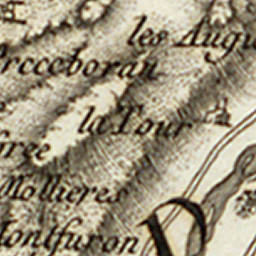 les Augu
Prcceboran
la Tour
iree
Mollieres
Montfuron